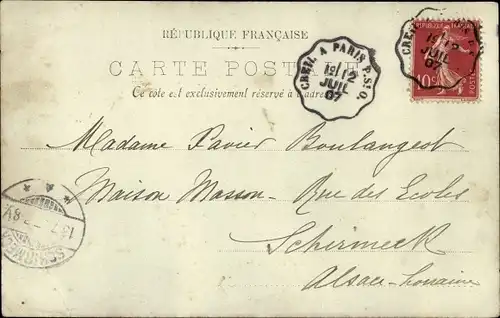 RÉPUBLIQUE FRANÇAISE
CARTE POSTALE
Ce côté est exclusivement réservé à l'adresse
CREIL A PARIS P. St O.
12/12
JUIL
07
CREIL
12
JUIL
07
10c
POSTES
Madame Xavier Boulangeot
Maison Masson - Rue des Ecoles
Schirmeck
Alsace-Lorraine
SCHIRMECK
13.7
8V